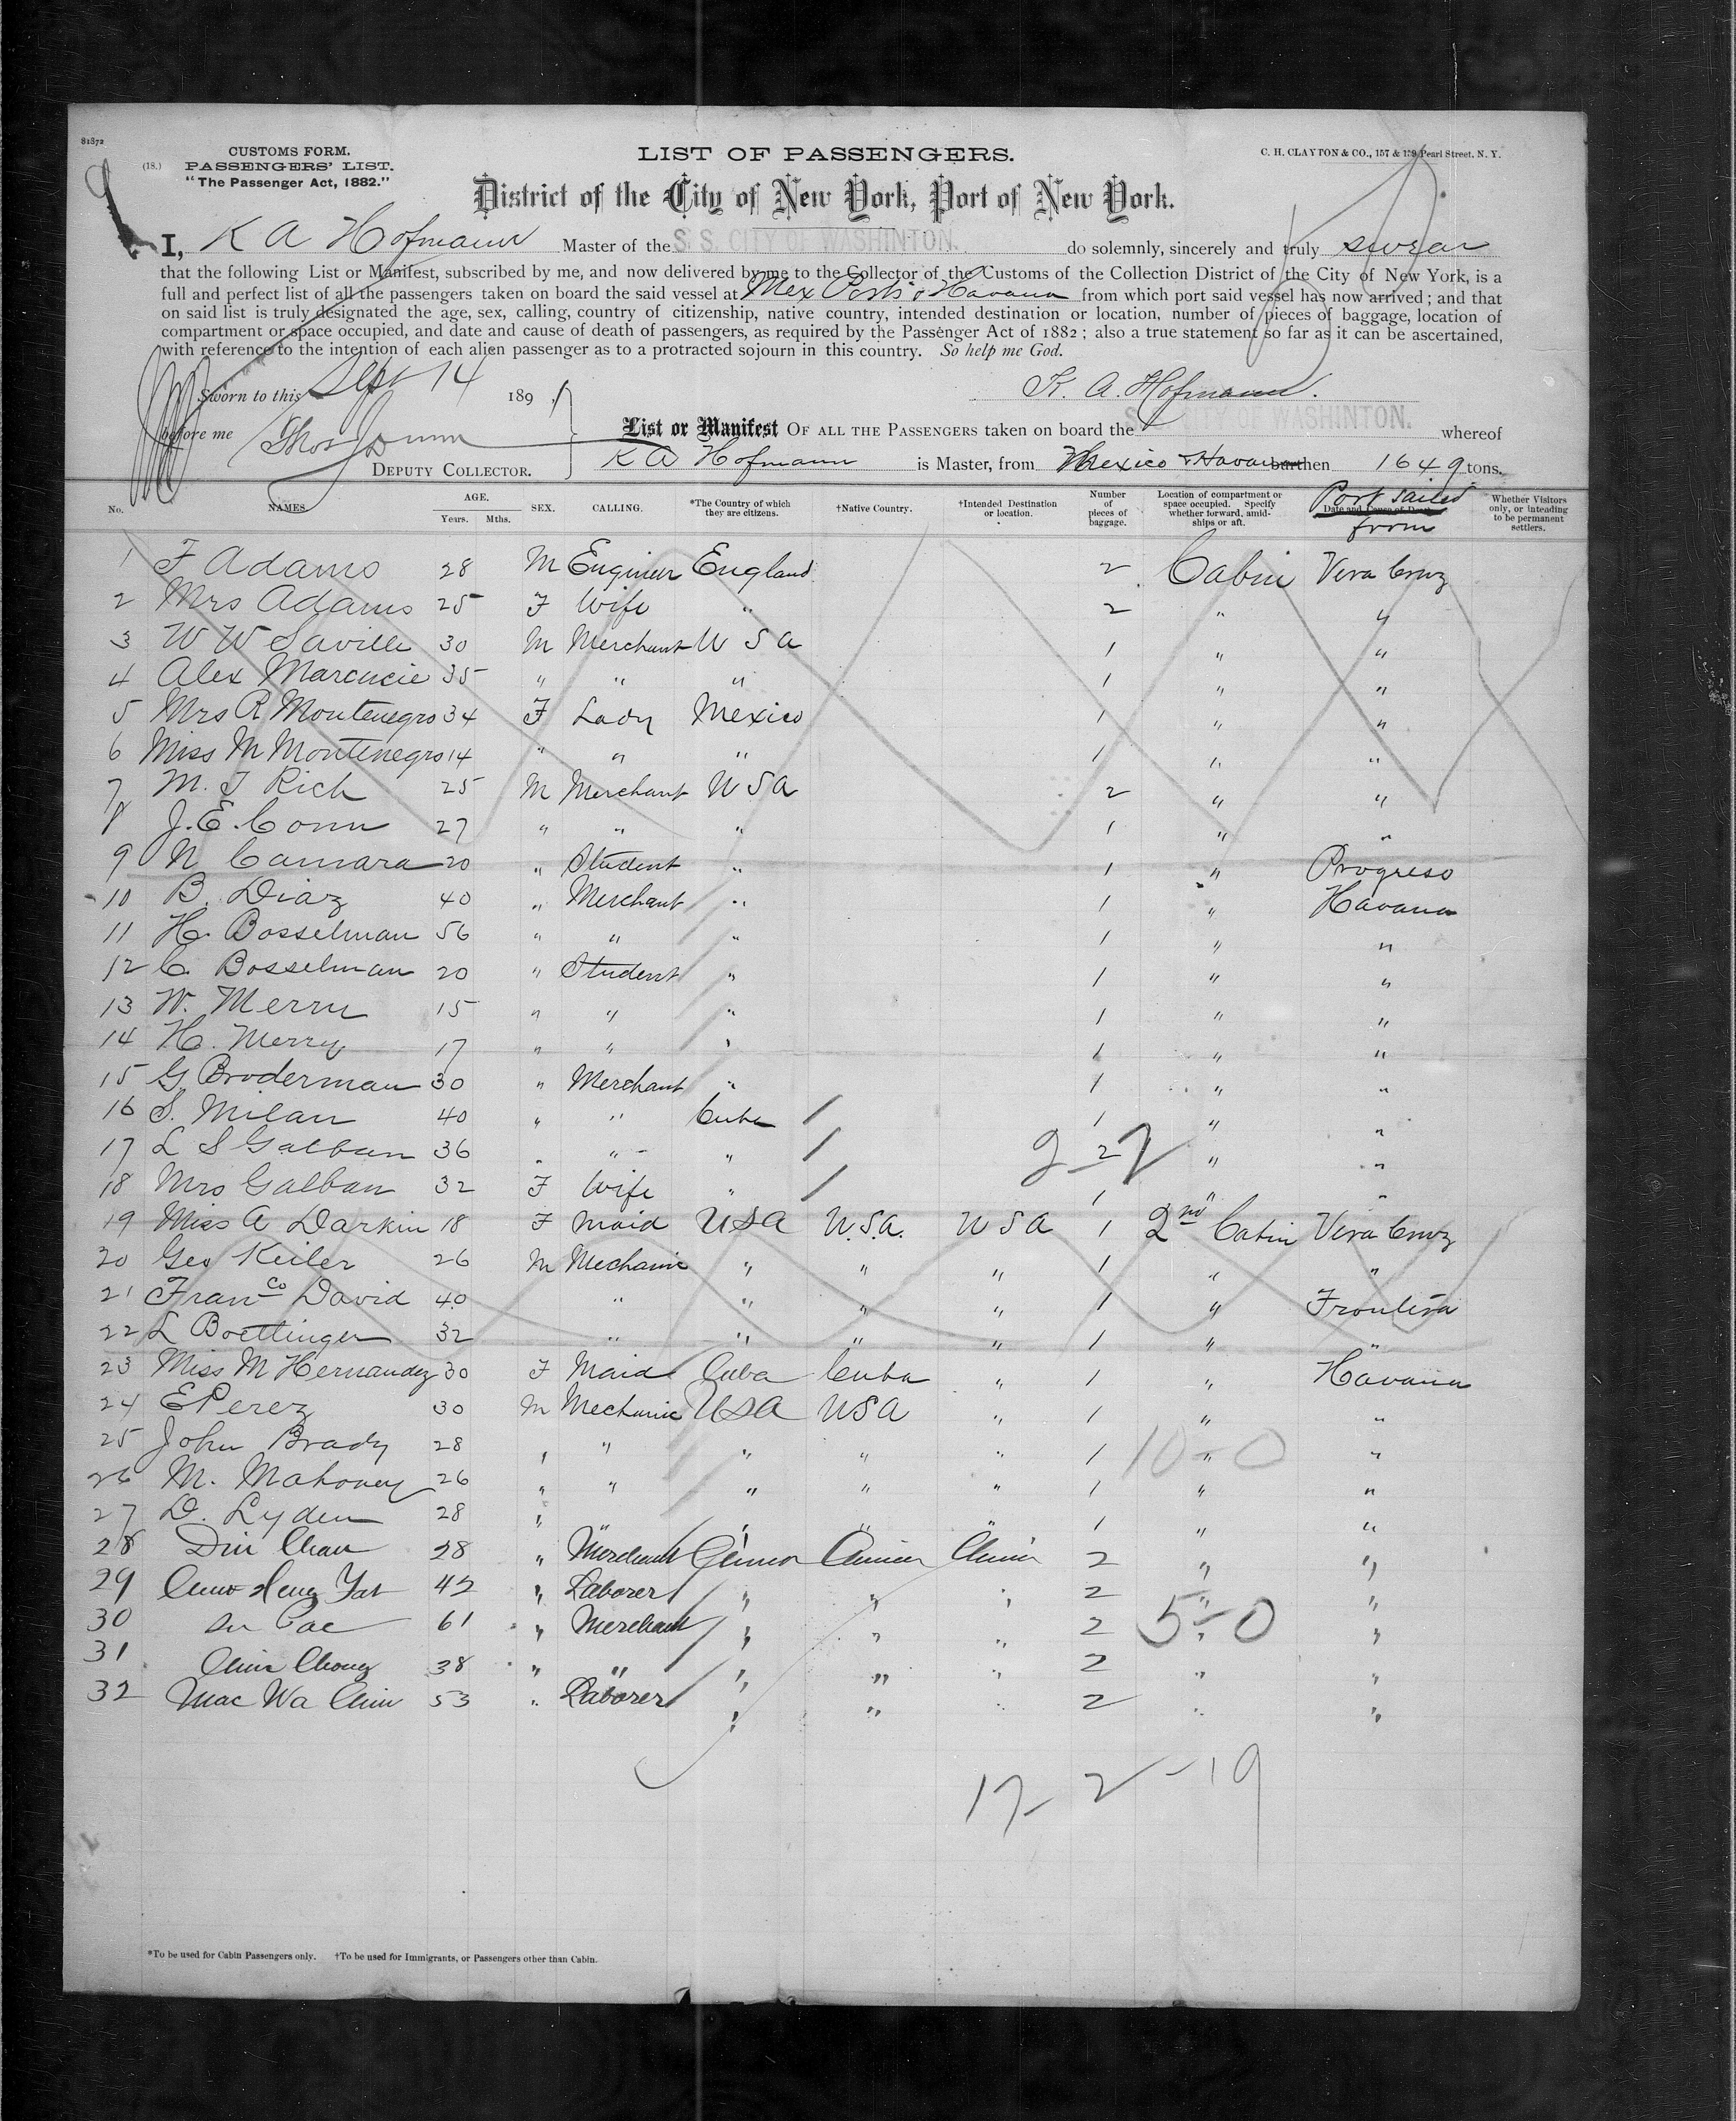 81872
CUSTOMS FORM.
(18.) PASSENGERS' LIST.
"The Passenger Act, 1882."
LIST OF PASSENGERS.
C. H. CLAYTON & CO., 157 & 159 Pearl Street, N. Y.
District of the City of New York, Port of New York.
I, K A Hofmann Master of the S. S. CITY OF WASHINTON. do solemnly, sincerely and truly swear
that the following List or Manifest, subscribed by me, and now delivered by me to the Collector of the Customs of the Collection District of the City of New York, is a
full and perfect list of all the passengers taken on board the said vessel at Mex Ports & Havana from which port said vessel has now arrived; and that
on said list is truly designated the age, sex, calling, country of citizenship, native country, intended destination or location, number of pieces of baggage, location of
compartment or space occupied, and date and cause of death of passengers, as required by the Passenger Act of 1882; also a true statement so far as it can be ascertained,
with reference to the intention of each alien passenger as to a protracted sojourn in this country. So help me God.
Sworn to this Sept 14 189
K. A. Hofmann.
before me Thos
DEPUTY COLLECTOR.
List or Manifest OF ALL THE PASSENGERS taken on board the S. S. CITY OF WASHINTON. whereof
K A Hofmann is Master, from Mexico & Havana burthen 1649 tons.
No. NAMES. AGE. Years. Mths. SEX. CALLING. *The Country of which they are citizens. †Native Country. †Intended Destination or location. Number of pieces of baggage. Location of compartment or space occupied. Specify whether forward, amidships or aft. Date and Cause of Death Port sailed from Whether Visitors only, or intending to be permanent settlers.
1 F Adams 28 M Engineer England 2 Cabin Vera Cruz
2 Mrs Adams 25 F Wife " 2 " "
3 W W Saville 30 M Merchant U S A 1 " "
4 Alex Marcucie 35 " " " 1 " "
5 Mrs R Montenegro 34 F Lady Mexico 1 " "
6 Miss M Montenegro 14 " " " 1 " "
7 M. J Rich 25 M Merchant U S A 2 " "
8 J. E. Conn 27 " " " 1 " "
9 N Camara 20 " Student " 1 " Progreso
10 B. Diaz 40 " Merchant " 1 " Havana
11 H. Bosselman 56 " " " 1 " "
12 C. Bosselman 20 " Student " 1 " "
13 W. Merry 15 " " " 1 " "
14 H. Merry 17 " " " 1 " "
15 G Broderman 30 " Merchant " 1 " "
16 S. Milan 40 " " Cuba / 1 " "
17 L S Galban 36 " " " / 2 " "
18 Mrs Galban 32 F Wife " / 1 " "
19 Miss A Darkin 18 F Maid USA U.S.A. U S A 1 2nd Cabin Vera Cruz
20 Geo Keiler 26 M Mechanic " " " 1 " "
21 Franco David 40 " " " " 1 " Frontera
22 L Boettinger 32 " " " " 1 " "
23 Miss M Hernandez 30 F Maid Cuba Cuba " 1 " Havana
24 E Perez 30 M Mechanic USA USA " 1 " "
25 John Brady 28 " " " " " 1 " "
10-0
26 M. Mahoney 26 " " " " " 1 " "
27 D. Lyden 28 " " " " " 1 " "
28 Din Chan 28 " Merchant China China China 2 " "
29 42 " Laborer " " " 2 " "
30 61 " Merchant " " " 2 " "
5-0
31 Chin Chong 38 " " " " " 2 " "
32 Mac Wa Chin 53 " Laborer " " " 2 " "
17-2-19
*To be used for Cabin Passengers only. †To be used for Immigrants, or Passengers other than Cabin.